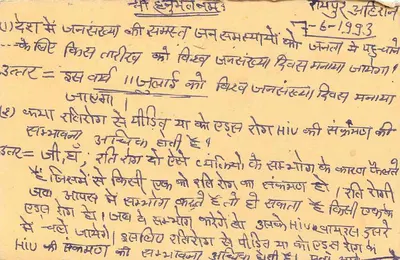 श्री हनुमतेनमः रायपुर अहिरान
7-6-1993
(1) देश में जनसंख्या की समस्त जन समस्यायों को जनता में पहुचाने
के लिए किस तारीख को विश्व जनसंख्या दिवस मनाया जायेगा?
उत्तर = इस वर्ष 11 जुलाई को विश्व जनसंख्या दिवस मनाया
जाएगा।
(2) क्या रतिरोग से पीड़ित या को एड्स रोग HIV की संक्रमण की
सम्भावना अधिक होती है?
उत्तर = जी, हाँ, रति रोग दो ऐसे व्यक्तियो के सम्भोग के कारण फैलते
हैं, जिसमें से किसी एक को रति रोग का संक्रमण हो। रति रोगी
जब आपस में सम्भोग करते हैं तो हो सकता है किसी एक के
एड्स रोग हो। जब वे सम्भोग करेगे तो उसके HIV वायरस दूसरे
में चले जायेगे। इसलिए रतिरोग से पीड़ित या को एड्स रोग के
HIV की संक्रमण की सम्भावना अधिक होती है।